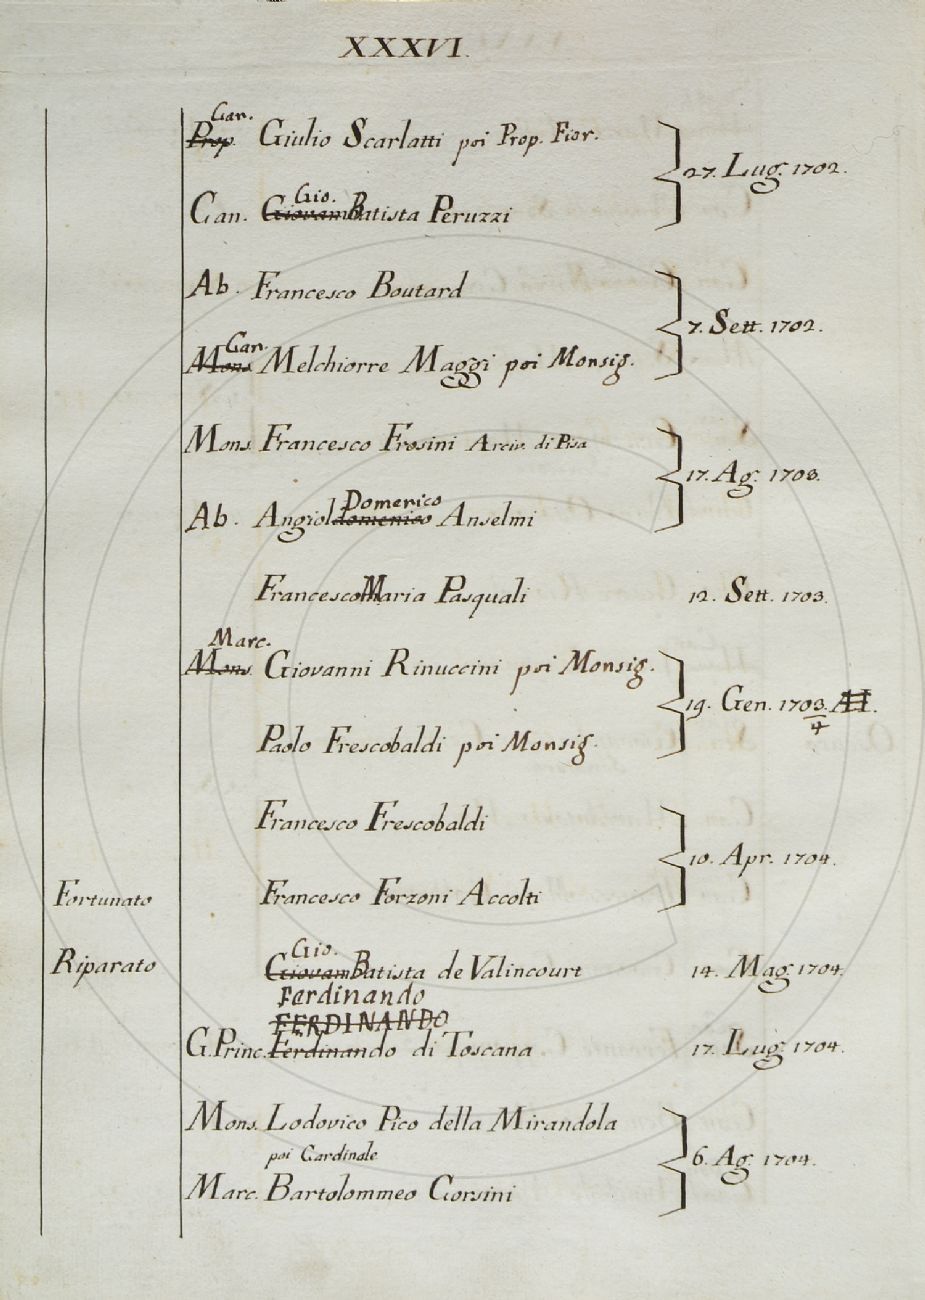 XXXVI.
Can.
Prop. Giulio Scarlatti poi Prop. Fior.
27. Lug. 1702.
Gio.
Can. Giovambatista Peruzzi
Ab. Francesco Boutard
7. Sett. 1702.
Can.
Mons. Melchiorre Maggi poi Monsig.
Mons. Francesco Frosini Arciv. di Pisa
17. Ag. 1703.
Domenico
Ab. Angioldomenico Anselmi
Francesco Maria Pasquali 12. Sett. 1703.
Marc.
Mons. Giovanni Rinuccini poi Monsig.
19. Gen. 1703.
4
Paolo Frescobaldi poi Monsig.
Francesco Frescobaldi
10. Apr. 1704.
Fortunato Francesco Forzoni Accolti
Gio.
Riparato Giovambatista de Valincourt 14. Mag. 1704.
Ferdinando
FERDINANDO
G. Princ. Ferdinando di Toscana 17. Lug. 1704.
Mons. Lodovico Pico della Mirandola
poi Cardinale
6. Ag. 1704.
Marc. Bartolommeo Corsini